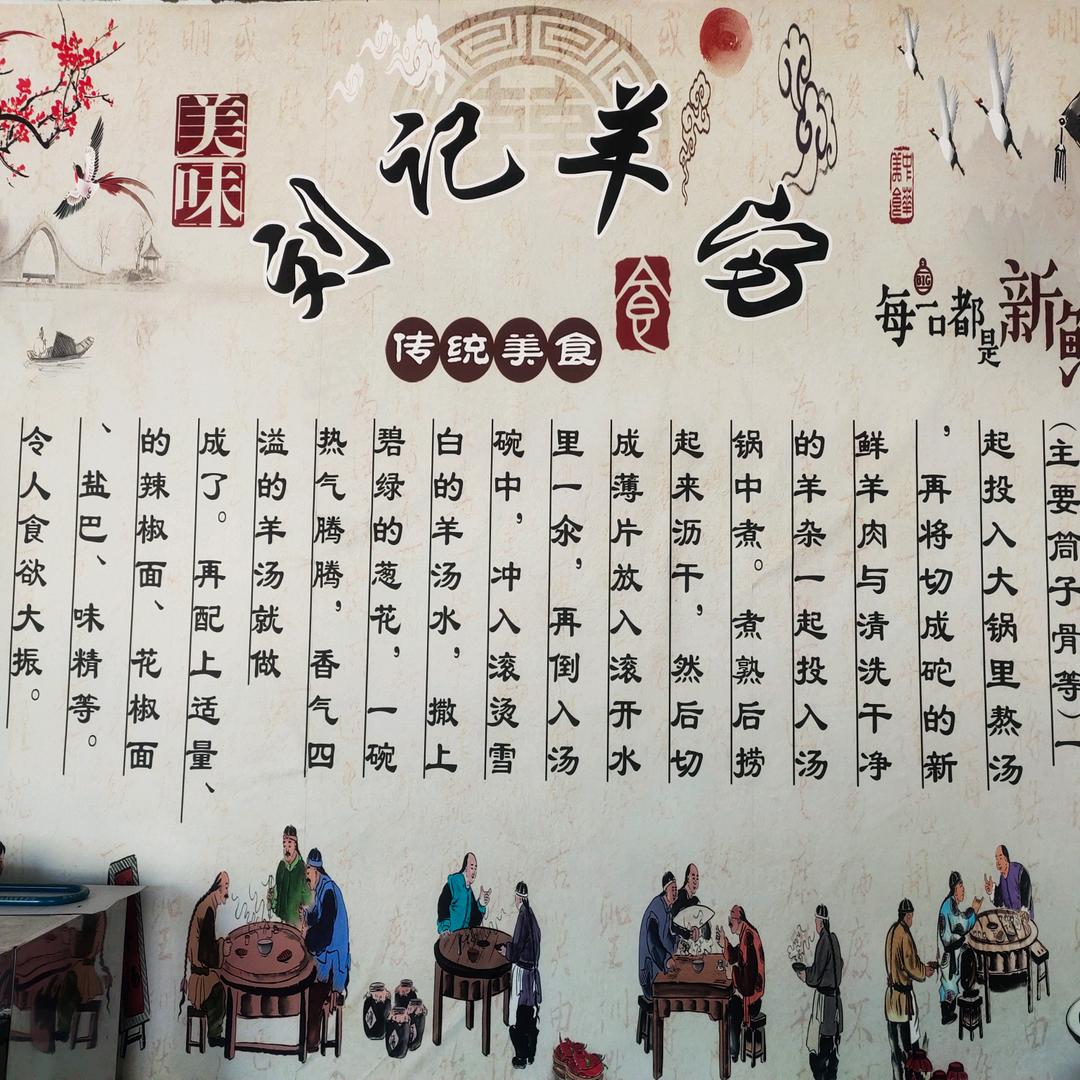 美味
记羊
食
传统美食
中华美食
每一口都是新鲜
BIG
（主要筒子骨等）一
起投入大锅里熬汤
，再将切成砣的新
鲜羊肉与清洗干净
的羊杂一起投入汤
锅中煮。煮熟后捞
起来沥干，然后切
成薄片放入滚开水
里一氽，再倒入汤
碗中，冲入滚烫雪
白的羊汤水，撒上
碧绿的葱花，一碗
热气腾腾，香气四
溢的羊汤就做
成了。再配上适量、
的辣椒面、花椒面
、盐巴、味精等。
令人食欲大振。